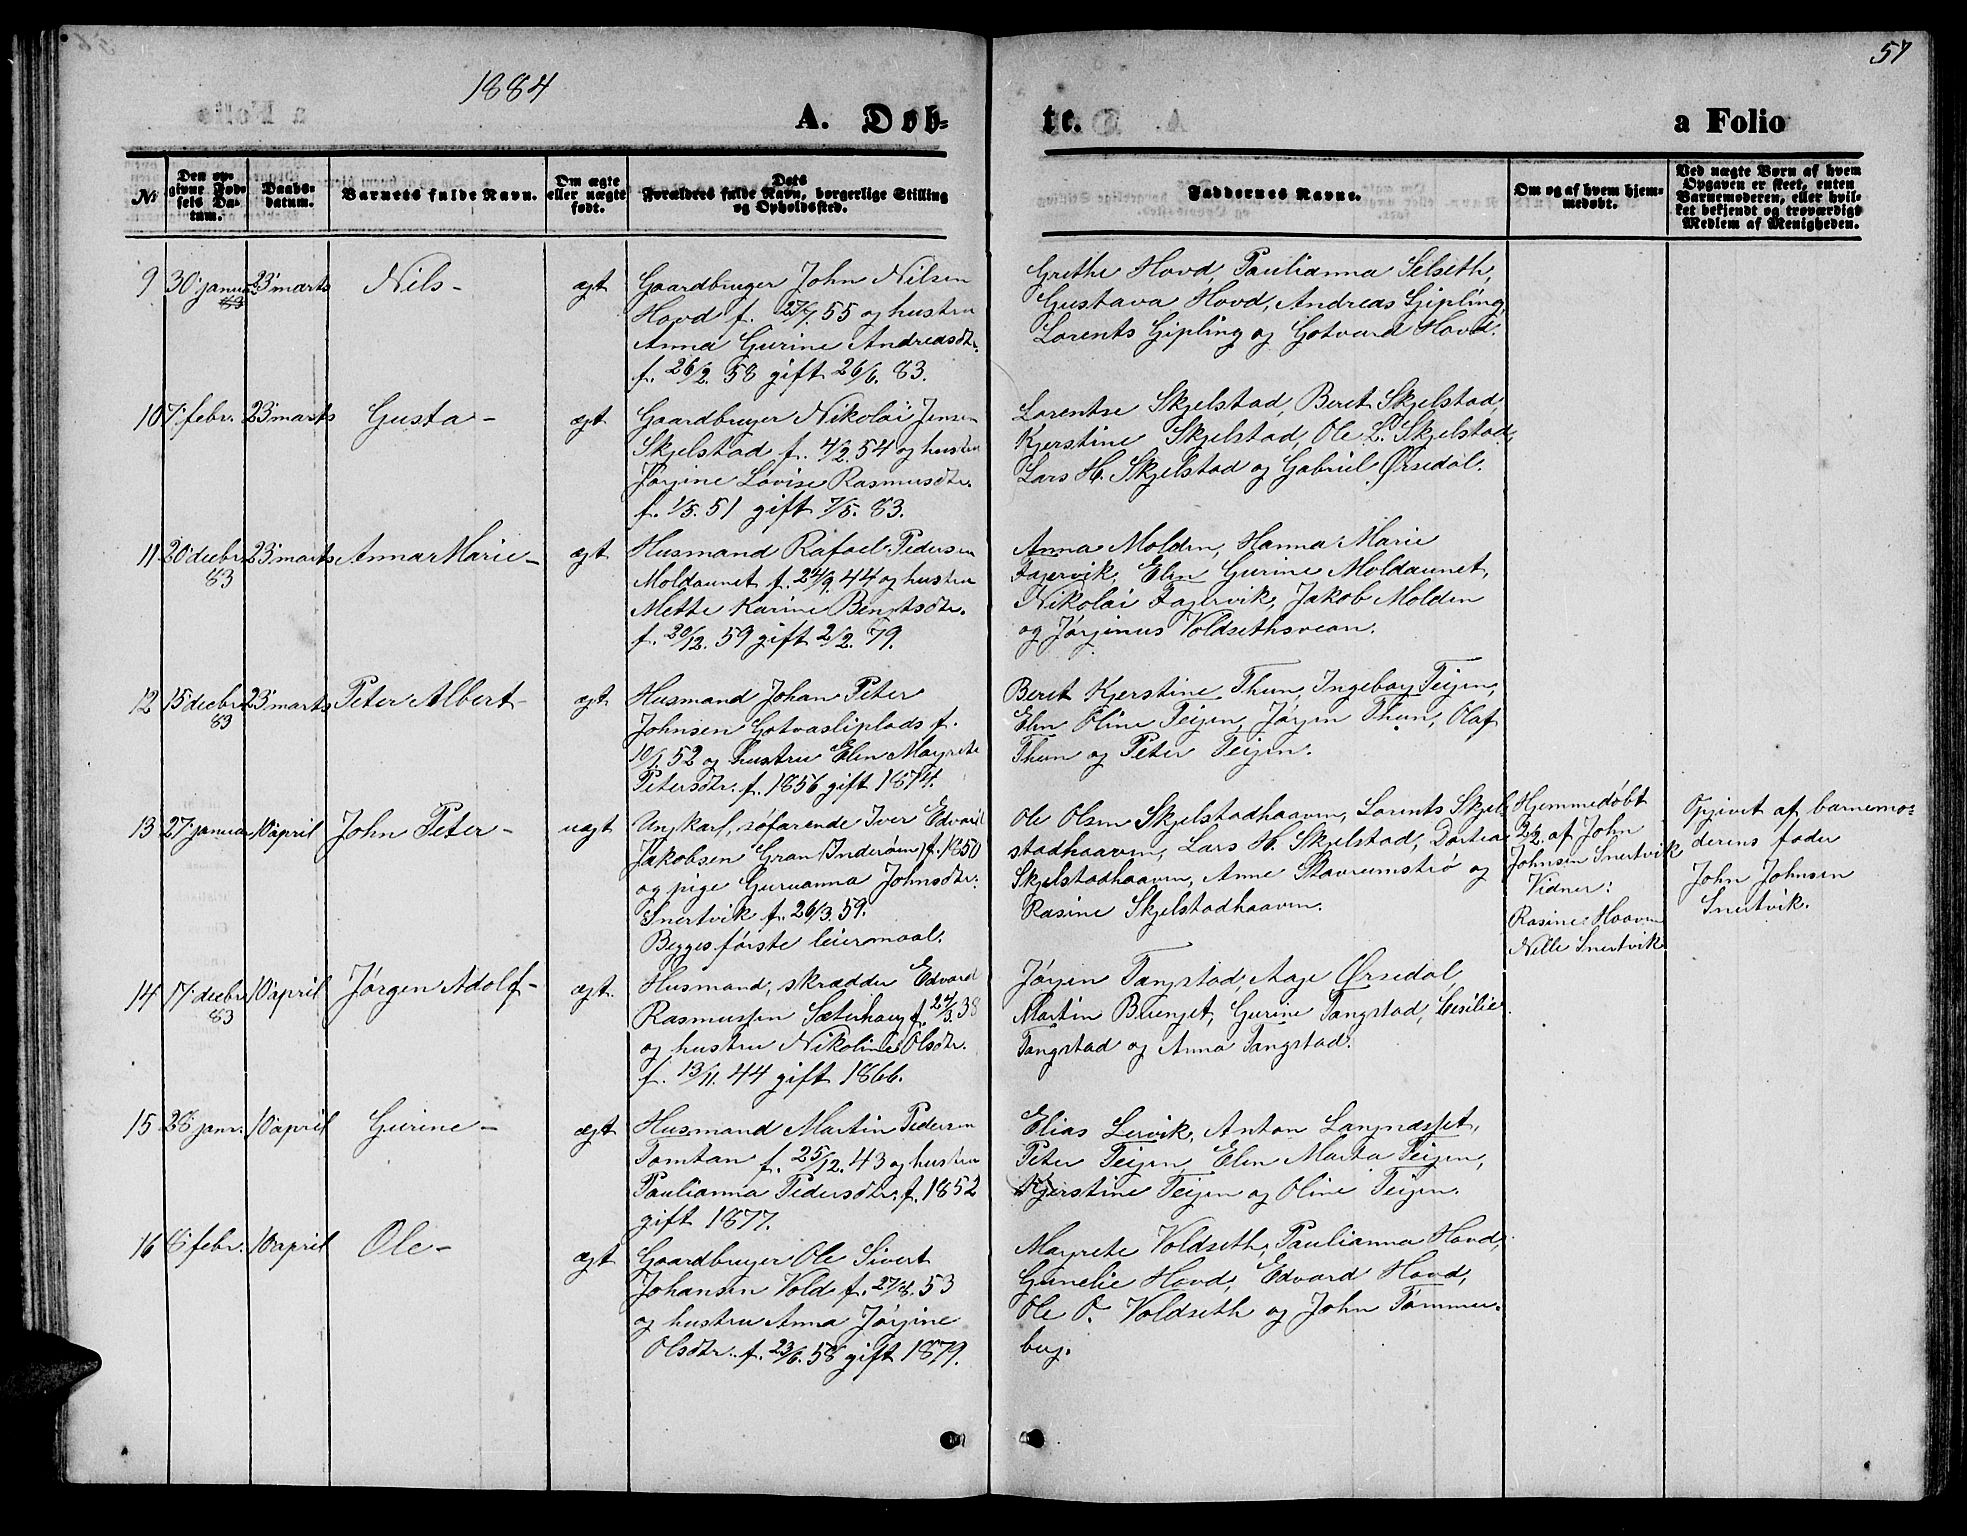 57
1884
A. Døb-
te.
a Folio
No
Den op-
givne Fød-
sels Da-
tum.
Daabs-
datum.
Barnets fulde Navn.
Om ægte
eller uægte
født.
Dets
Forældres fulde Navn, borgerlige Stilling
og Opholdssted.
Faddernes Navne.
Om og af hvem hjem-
medøbt.
Ved uægte Børn af hvem
Opgaven er skeet, enten
Barnemoderen, eller hvil-
ket bekjendt og troværdigt
Medlem af Menigheden.
9
30 janua
83
23 marts
Nils -
ægt
Gaardbruger John Nilsen
Hovd f. 27/1. 55 og hustru
Anna Gurine Andreasdtr.
f. 26/2. 58 gift 26/6. 83.
Grethe Hovd, Paulianna Selseth,
Gustava Hovd, Andreas Gipling,
Lorents Gipling og Gotvard Hovd.
10
7 febr.
23 marts
Gusta -
ægt
Gaardbruger Nikolai Jensen
Skjelstad f. 4/2. 54 og hustru
Jørgine Lovise Rasmusdtr.
f. 1/5. 51 gift 7/5. 83.
Lorentse Skjelstad, Beret Skjelstad,
Kjerstine Skjelstad, Ole L. Skjelstad,
Lars H. Skjelstad og Gabriel Ørsedal.
11
20 decbr
83
23 marts
Anna Marie -
ægt
Husmand Rafael Pedersen
Moldaunet f. 24/9. 44 og hustru
Mette Karine Bengtsdtr.
f. 30/12. 59 gift 2/2. 79.
Anna Molden, Hanna Marie
Fagervik, Elen Gurine Moldaunet,
Nikolai Fagervik, Jakob Molden
og Jørginus Voldsethsvean.
12
15 decbr
83
23 marts
Peter Albert -
ægt
Husmand Johan Peter
Johnsen Gotvasliplads f.
10/1. 52 og hustru Elen Margrete
Petersdtr. f. 1856 gift 1874.
Beret Kjerstine Thun, Ingeborg Teigen,
Elen Oline Teigen, Jørgen Thun, Olaf
Thun og Peter Teigen.
13
27 janua
10 april
John Peter -
uægt
Ungkarl, søfarende Iver Edvard
Jakobsen Gran (Inderøen) f. 1850
og pige Guruanna Johnsdtr.
Snertvik f. 26/3. 59.
Begges første leiermaal.
Ole Olsen Skjelstadhaaven, Lorents Skjel-
stadhaaven, Lars H. Skjelstad, Dortea
Skjelstadhaaven, Anne Stavrumstrø og
Rasine Skjelstadhaaven.
Hjemmedøbt
2/2. af John
Johnsen Snertvik
Vidner:
Rasine Haaven
Nelle Snertvik
Opgivet af barnemo-
derens fader
John Johnsen
Snertvik.
14
17 decbr
83
10 april
Jørgen Adolf -
ægt.
Husmand, skrædder Edvard
Rasmussen Sæterhaug f. 24/3. 38
og hustru Nikoline Olsdtr.
f. 13/11. 44 gift 1866.
Jørgen Tangstad, Aage Ørsedal,
Martin Brenget, Gurine Tangstad, Cesilie
Tangstad og Anna Tangstad.
15
28 janr.
10 april
Gurine -
ægt
Husmand Martin Pedersen
Tomtan f. 25/12. 43 og hustru
Paulianna Pedersdtr. f. 1852
gift 1877.
Elias Lervik, Anton Langnæsset,
Peter Teigen, Elen Marta Teigen,
Kjerstine Teigen og Oline Teigen.
16
8 febr.
10 april
Ole -
ægt
Gaardbruger Ole Sivert
Johansen Vold f. 27/8. 53
og hustru Anna Jørgine
Olsdtr. f. 23/6. 58 gift 1879.
Margrete Voldseth, Paulianna Hovd,
Gunelie Hovd, Edvard Hovd,
Ole O. Voldseth og John Tømmer-
berg.